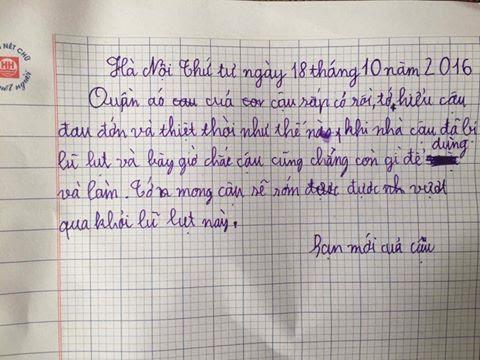 NÉT CHỮ
HH
NGƯỜI
Hà Nội Thứ tư ngày 18 tháng 10 năm 2016
Quần áo cau của cor cậu sắp có rồi, tớ hiểu cậu
đau đớn và thiệt thời như thế nào, khi nhà cậu đã bị
lũ lụt và bây giờ chắc cậu cũng chẳng còn gì để dựng
và làm. Tớ mong cậu sẽ sớm được được nh vượt
qua khỏi lũ lụt này.
Bạn mới của cậu